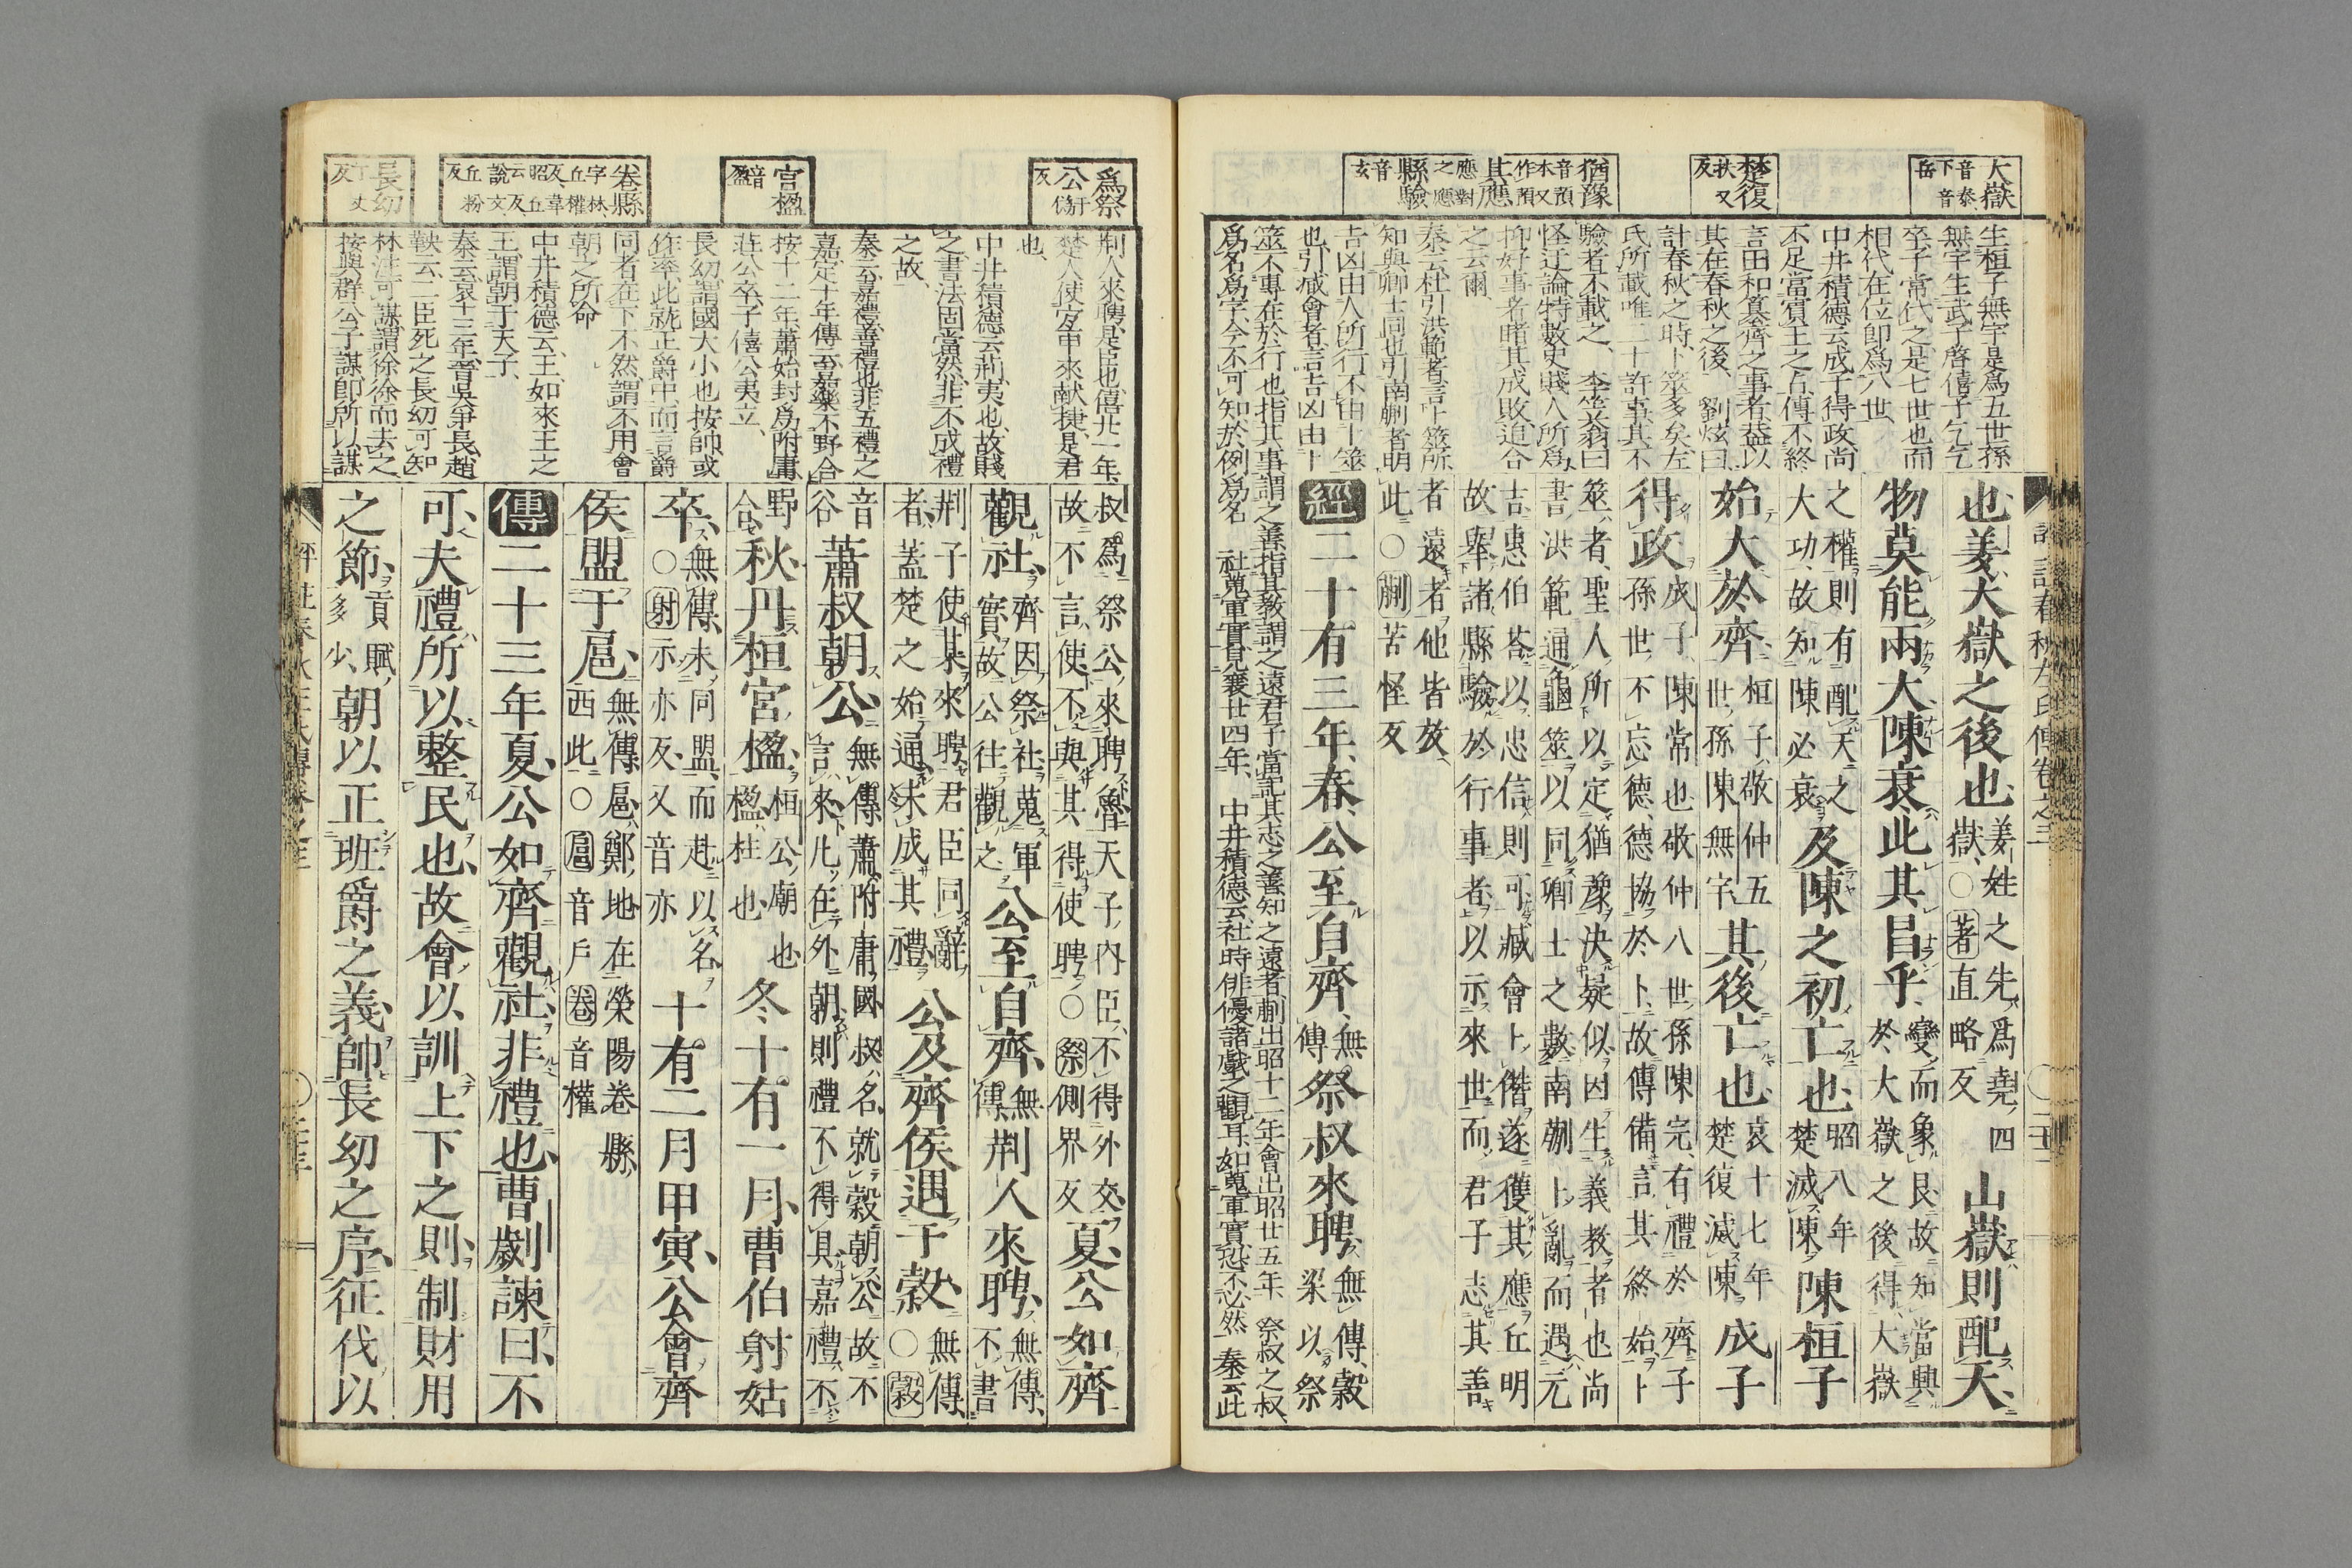 大嶽 音泰下音岳
楚復 扶又反
猶豫 音預本又作預
其應 應對之應
縣驗 音玄
生桓子無宇是爲五世孫
無宇生武子啓僖子乞乞
卒子常代之是七世也而
相代在位即爲八世
中井積德云成子得政尚
不足當賓王之占傳不終
言田和簒齊之事者葢以
其在春秋之後 劉炫曰
計春秋之時卜筮多矣左
氏所載唯二十許事其不
驗者不載之 李笠翁曰
怪迂論特數史賤人所爲
抑好事者睹其成敗追合
之云爾
秦云杜引洪範者言卜筮所
知與卿士同也引南蒯者明
吉凶由人所行不由卜筮
也引臧會者言吉凶由卜
筮不專在於行也指其事謂之善指其教謂之遠君子當記其志之善知之遠者蒯出昭十二年會出昭廿五年 祭叔之叔
爲名爲字今不可知於例爲名 社蒐軍實見襄廿四年 中井積德云社時俳優諸戲之觀耳如蒐軍實恐不必然 秦云此
也姜大嶽之後也姜姓之先爲堯四嶽○著直略反山嶽則配天
物莫能兩大陳衰此其昌乎變而象艮故知當興於大嶽之後得大嶽
之權則有配天之大功故知陳必衰及陳之初亡也昭八年楚滅陳陳桓子
始大於齊桓子敬仲五世孫陳無宇其後亡也哀十七年楚復滅陳成子
得政成子陳常也敬仲八世孫陳完有禮於齊子孫世不忘德德協於卜故傳備言其終始卜
筮者聖人所以定猶豫決疑似因生義教者也尚書洪範通龜筮以同卿士之數南蒯卜亂而遇元
吉惠伯荅以忠信則可臧會卜僭遂獲其應丘明故舉諸縣驗於行事者以示來世而君子志其善
者遠者他皆放此○蒯苦怪反
經二十有三年春公至自齊無傳祭叔來聘無傳穀梁以祭
爲祭公 于僞反
宮楹 音盈
卷縣 字林丘權反韋昭丘云說文丘粉反
長幼 丁丈反
荆人來聘是臣也僖廿一年
楚人使宜申來献捷是君
也
中井積德云荆夷也故賤
之書法固當然非不成禮
之故
秦云嘉禮善禮也非五禮之
嘉定十年傳云嘉樂不野合
按十二年蕭始封爲附庸
莊公卒子僖公夷立
長幼謂國大小也按帥或
作率此就正爵中而言爵
同者在下不然謂不用會
朝之所命
中井積德云王如來王之
王謂朝于天子
秦云哀十三年晉吳爭長趙
鞅云二臣死之長幼可知
林注可謀謂徐徐而去之
按與群公子謀即所以謀
叔爲祭公來聘魯天子内臣不得外交故不言使不與其得使聘○祭側界反夏公如齊
觀社齊因祭社蒐軍實故公往觀之公至自齊無傳荆人來聘無傳不書
荆子使某來聘君臣同辭者蓋楚之始通未成其禮公及齊侯遇于穀無傳○穀
音谷蕭叔朝公無傳蕭附庸國叔名就穀朝公故不言來凡在外朝則禮不得具嘉禮不
野合秋丹桓宮楹桓公廟也楹柱也冬十有一月曹伯射姑
卒無傳未同盟而赴以名○射示亦反又音亦十有二月甲寅公會齊
侯盟于扈無傳扈鄭地在滎陽卷縣西北○扈音戶卷音權
傳二十三年夏公如齊觀社非禮也曹劌諫曰不
可夫禮所以整民也故會以訓上下之則制財用
之節貢賦多少朝以正班爵之義帥長幼之序征伐以